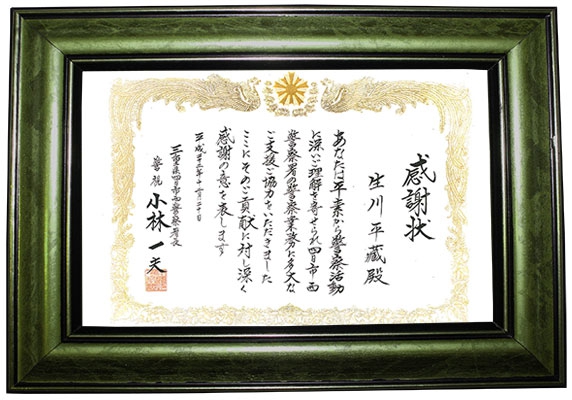 感謝状
生川平藏殿
あなたは平素から警察活動
に深いご理解を寄せられ四日市西
警察署の警察業務に多大な
ご支援ご協力をいただきました
ここにそのご貢献に対し深く
感謝の意を表します
平成十三年十二月二十日
三重県四日市西警察署長
警視 小林一夫